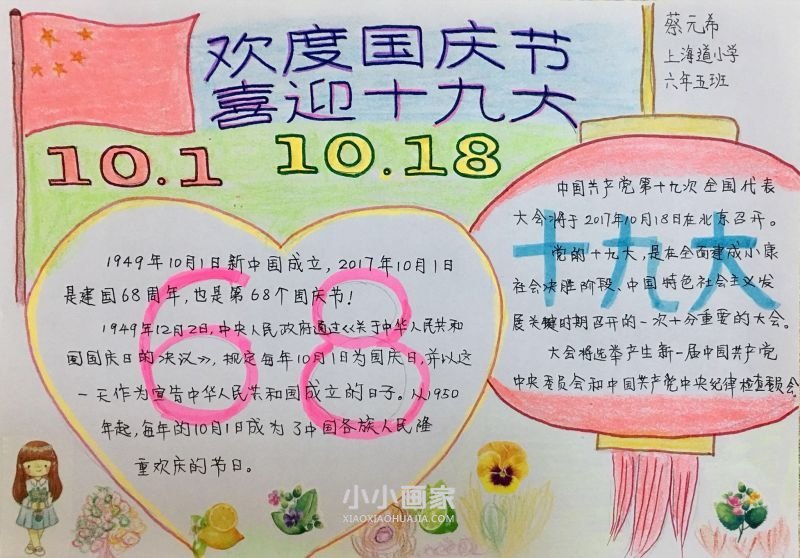 欢度国庆节
喜迎十九大
10.1
10.18
蔡元希
上海道小学
六年五班
68
1949年10月1日新中国成立，2017年10月1日
是建国68周年，也是第68个国庆节！
1949年12月2日，中央人民政府通过《关于中华人民共和
国国庆日的决议》，规定每年10月1日为国庆日，并以这
一天作为宣告中华人民共和国成立的日子。从1950
年起，每年的10月1日成为了中国各族人民隆
重欢庆的节日。
十九大
中国共产党第十九次全国代表
大会将于2017年10月18日在北京召开。
党的十九大，是在全面建成小康
社会决胜阶段、中国特色社会主义发
展关键时期召开的一次十分重要的大会。
大会将选举产生新一届中国共产党
中央委员会和中国共产党中央纪律检查委员会
小小画家
XIAOXIAOHUAJIA.COM